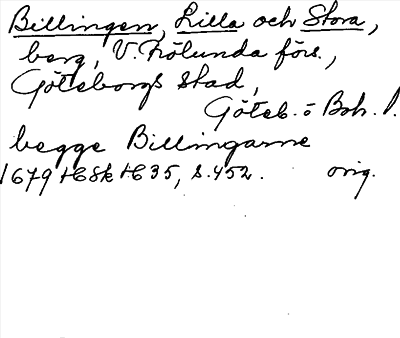 Billingen, Lilla och Stora,
berg, V. Frölunda förs.,
Göteborgs stad,
Göteb. o Boh. l.
begge Billingarne
1679 HSk HC35, s. 452. orig.